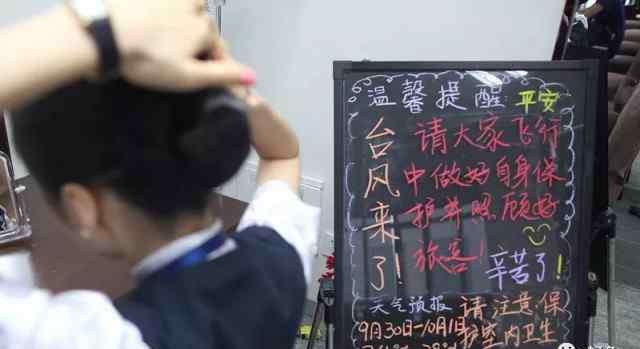 温馨提醒 平安
台风来了！
请大家飞行
中做好自身保
护并照顾好
旅客！
辛苦了！
天气预报
9月30日-10月1日
请注意保
护室内卫生